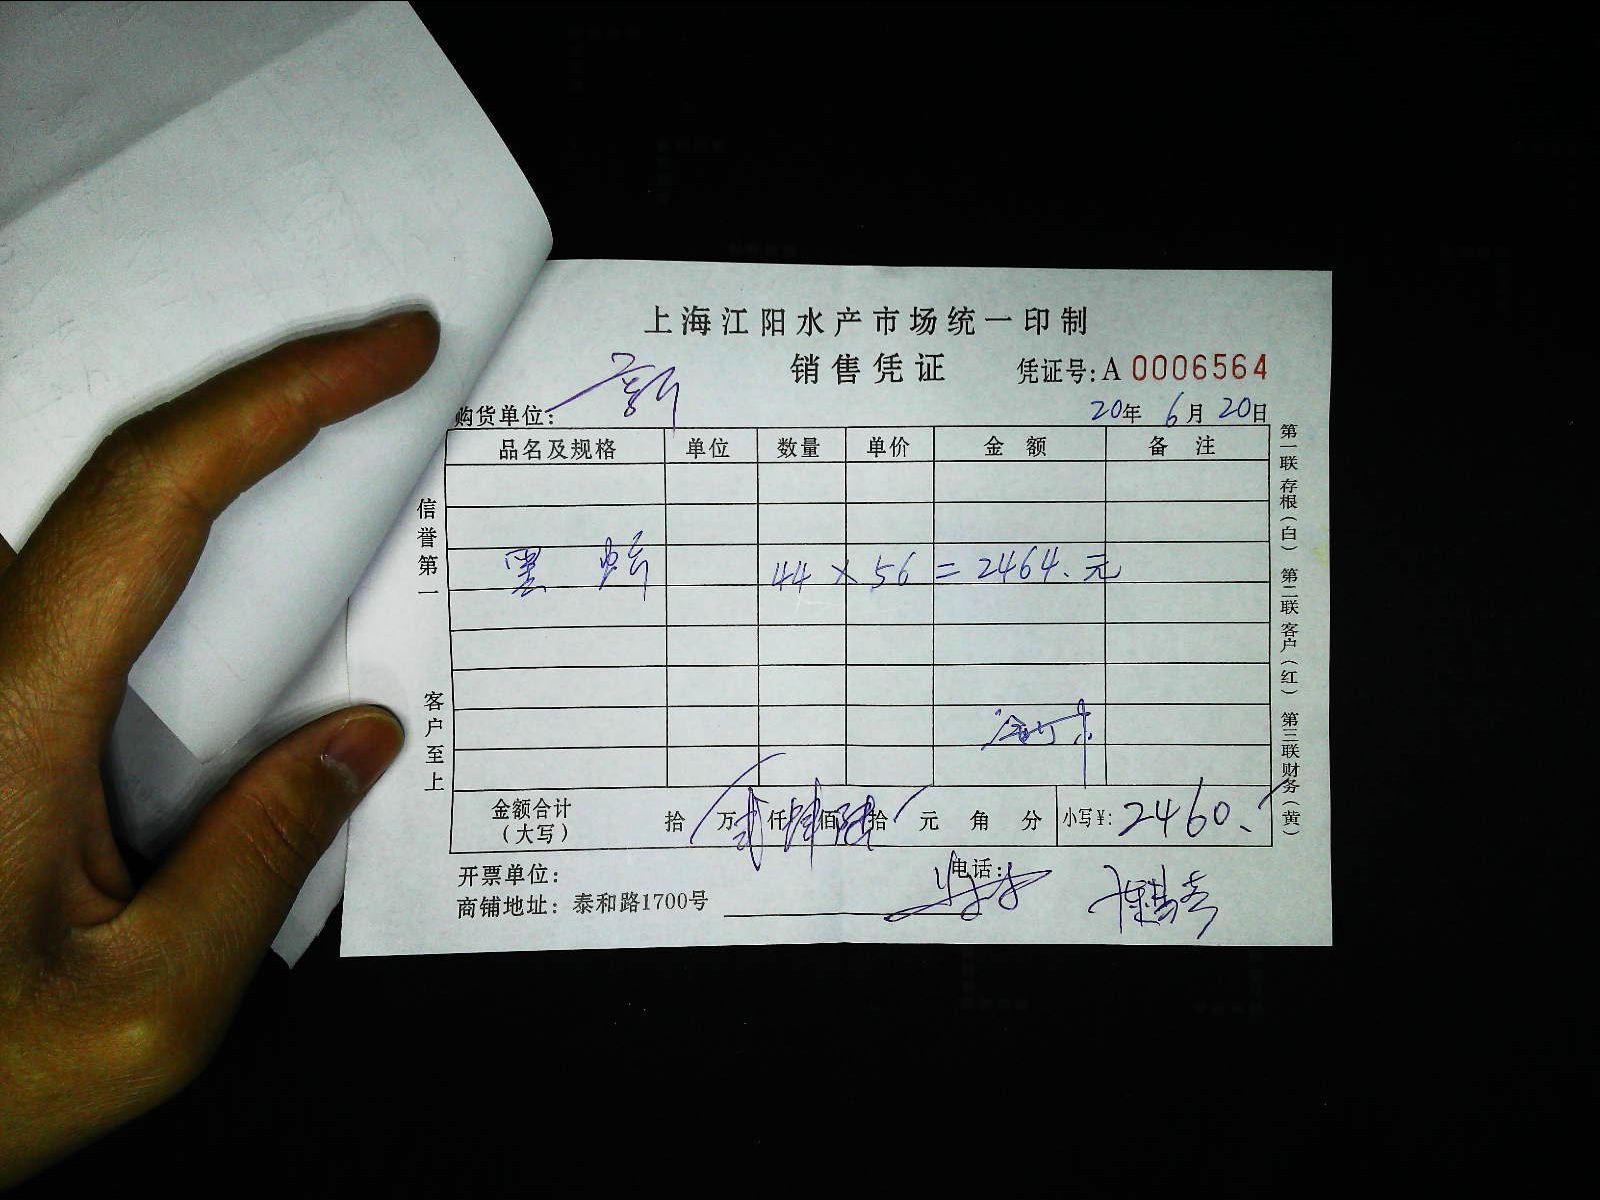 上海江阳水产市场统一印制
销售凭证
凭证号:A 0006564
购货单位:
20年 6月 20日
品名及规格 单位 数量 单价 金额 备注
黑 44 × 56 = 2464.元
金额合计（大写） 拾 万 贰 仟 肆 佰 陆 拾 元 角 分 小写¥: 2460.
开票单位: 电话:
商铺地址: 泰和路1700号
信誉第一 客户至上
第一联 存根（白） 第二联 客户（红） 第三联 财务（黄）